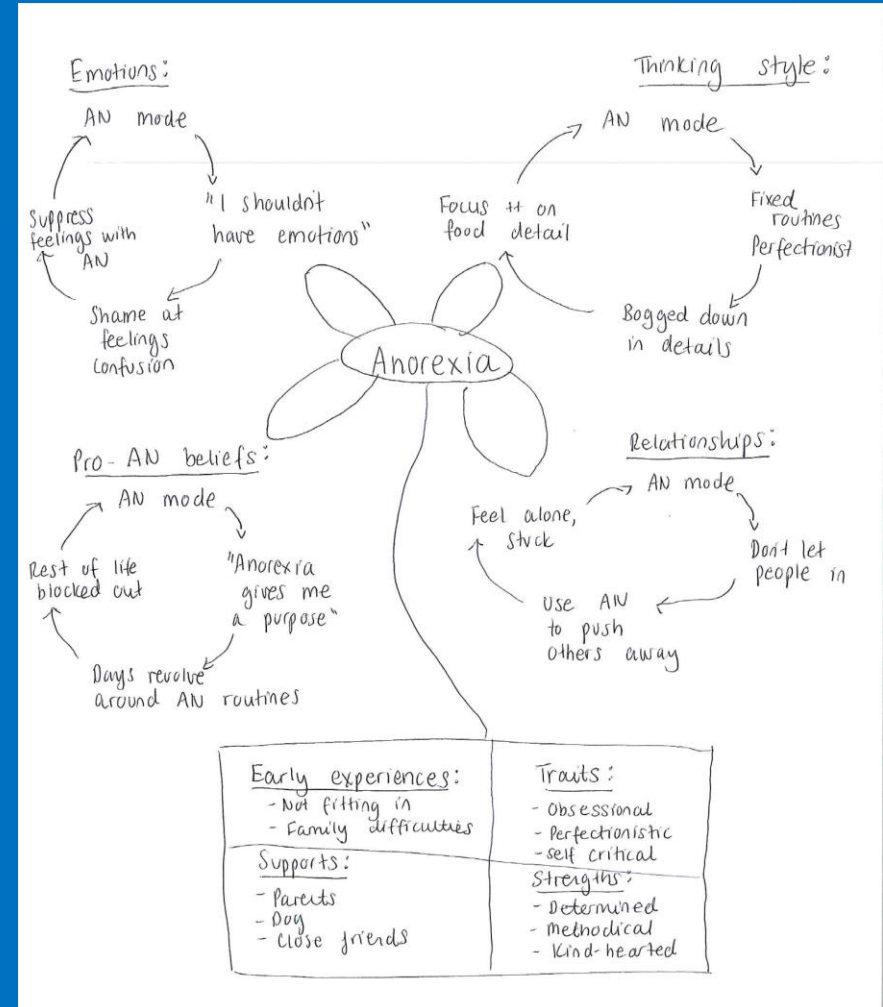 Emotions:
AN mode
"I shouldn't
have emotions"
Shame at
feelings
confusion
Suppress
feelings with
AN
Thinking style:
AN mode
Fixed
routines
Perfectionist
Bogged down
in details
Focus ++ on
food detail
Anorexia
Pro-AN beliefs:
AN mode
"Anorexia
gives me
a purpose"
Days revolve
around AN routines
Rest of life
blocked out
Relationships:
AN mode
Don't let
people in
Use AN
to push
others away
Feel alone,
stuck
Early experiences:
- Not fitting in
- Family difficulties
Traits:
- Obsessional
- Perfectionistic
- self critical
Supports:
- Parents
- Dog
- Close friends
Strengths:
- Determined
- methodical
- Kind-hearted